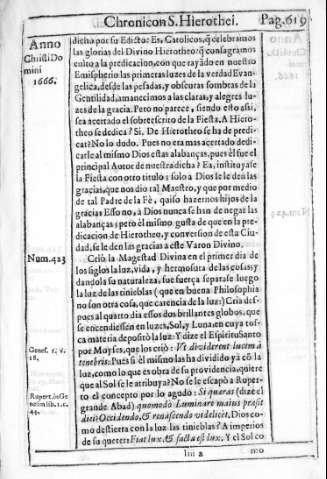 Chronicon S. Hierothei. Pag. 619
Anno
Christi Do
mini
1666.
dicha por su Edicto: Ea, Catolicos, q̃ celebramos
las glorias del Divino Hierotheo: q̃ consagramos
culto a la predicacion, con que rayádo en nuestro
Emispherio las primeras luzes de la verdad Evan-
gelica, desde las pesadas, y obscuras sombras de la
Gentilidad, amanecimos a las claras, y alegres lu-
zes de la gracia. Pero no parece, siendo esto assi,
sea acertado el sobreescrito de la Fiesta. A Hiero-
theo se dedica? Si. De Hierotheo se ha de predi-
car? No lo dudo. Pues no era mas acertado dedi-
carle al mismo Dios estas alabanças, pues él fue el
principal Autor de nuestra dicha? Ea, instituyase
la Fiesta con otro titulo: solo a Dios se le den las
gracias, que nos dio tal Maestro, y que por medio
de tal Padre de la Fè, quiso hazernos hijos de la
gracia: Esso no, a Dios nunca se han de negar las
alabanças; pero él mismo gusta de que en la pre-
dicacion de Hierotheo, y conversion de esta Ciu-
dad, se le den las gracias a este Varon Divino.
Num. 423
Criò la Magestad Divina en el primer dia de
los siglos la luz, vida, y hermosura de las cosas; y
dandola su naturaleza, fue fuerça separase luego
la luz de las tinieblas (que en buena Philosophia
no son otra cosa, que carencia de la luz:) Cria des-
pues al quarto dia essos dos brillantes globos, que
se encendiessen en luzes, Sol, y Luna, en cuya tos-
ca materia depositò la luz: Y dize el Espiritu Santo
por Moyses, que los criò: Vt dividerent lucem à
Genes. 1. v.
18.
tenebris: Pues si él mismo las ha dividido yà cõ la
luz, como lo que es obra de su providencia, quiere
que al Sol se le atribuya? No se le escapò a Ruper-
Rupert. in Ge
to el concepto por lo agudo: Si quæras (dize el
grande Abad) quomodò Luminare maius præsit
diei: Occidendo, & renascendo videlicet. Dios co-
mo destierra con la luz las tinieblas? A imperios
de su querer: Fiat lux, & facta est lux. Y el Sol co
Iiii 2 mo